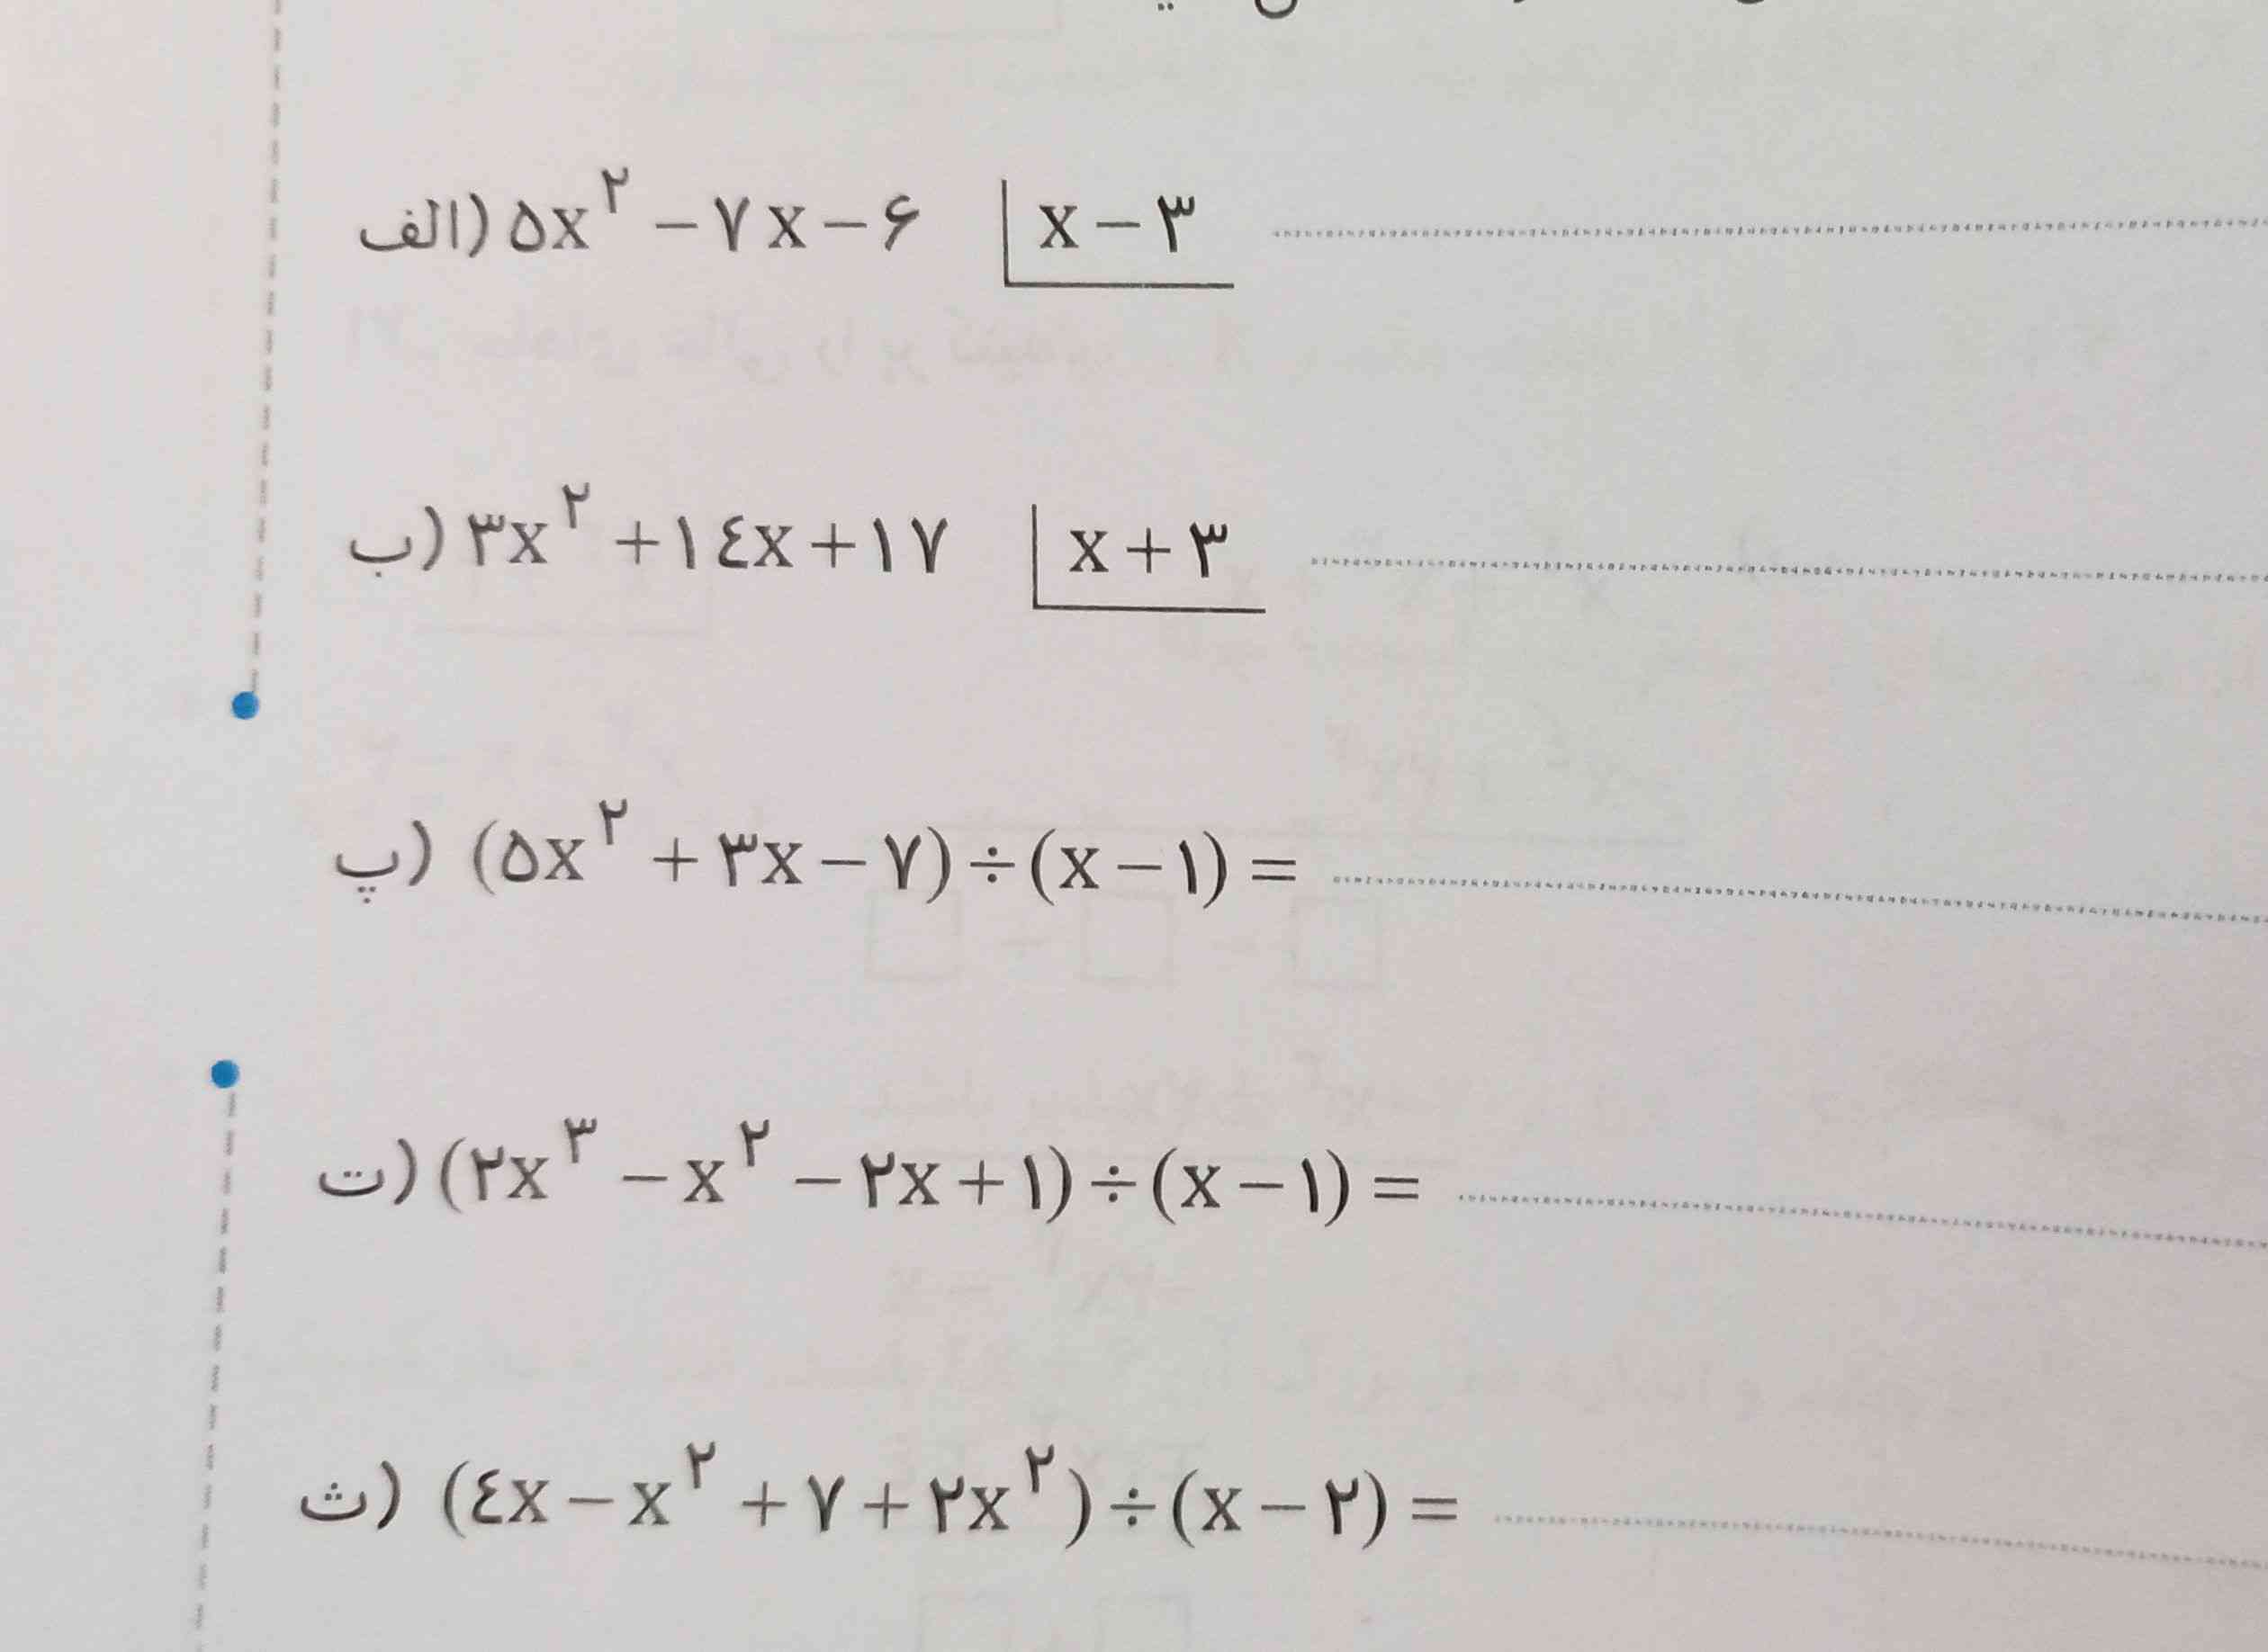 الف) ۵x^۲ − ۷x − ۶ | x − ۳
ب) ۳x^۲ + ۱٤x + ۱۷ | x + ۳
پ) (۵x^۲ + ۳x − ۷) ÷ (x − ۱) =
ت) (۲x^۳ − x^۲ − ۲x + ۱) ÷ (x − ۱) =
ث) (٤x − x^۲ + ۷ + ۲x^۲) ÷ (x − ۲) =